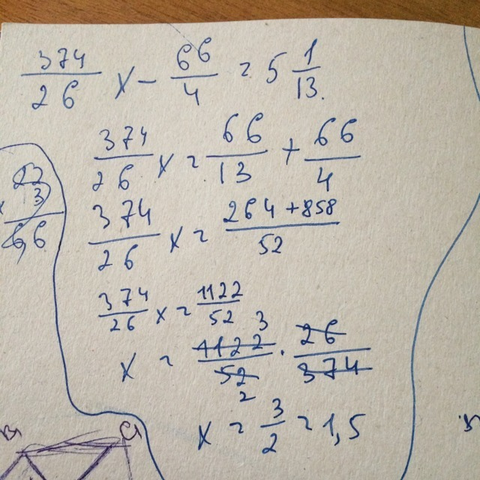 374/26 x - 66/4 = 5 1/13.
374/26 x = 66/13 + 66/4
374/26 x = (264 + 858)/52
374/26 x = 1122/52
x = 1122/52 · 26/374
3
2
x = 3/2 = 1,5
13
66